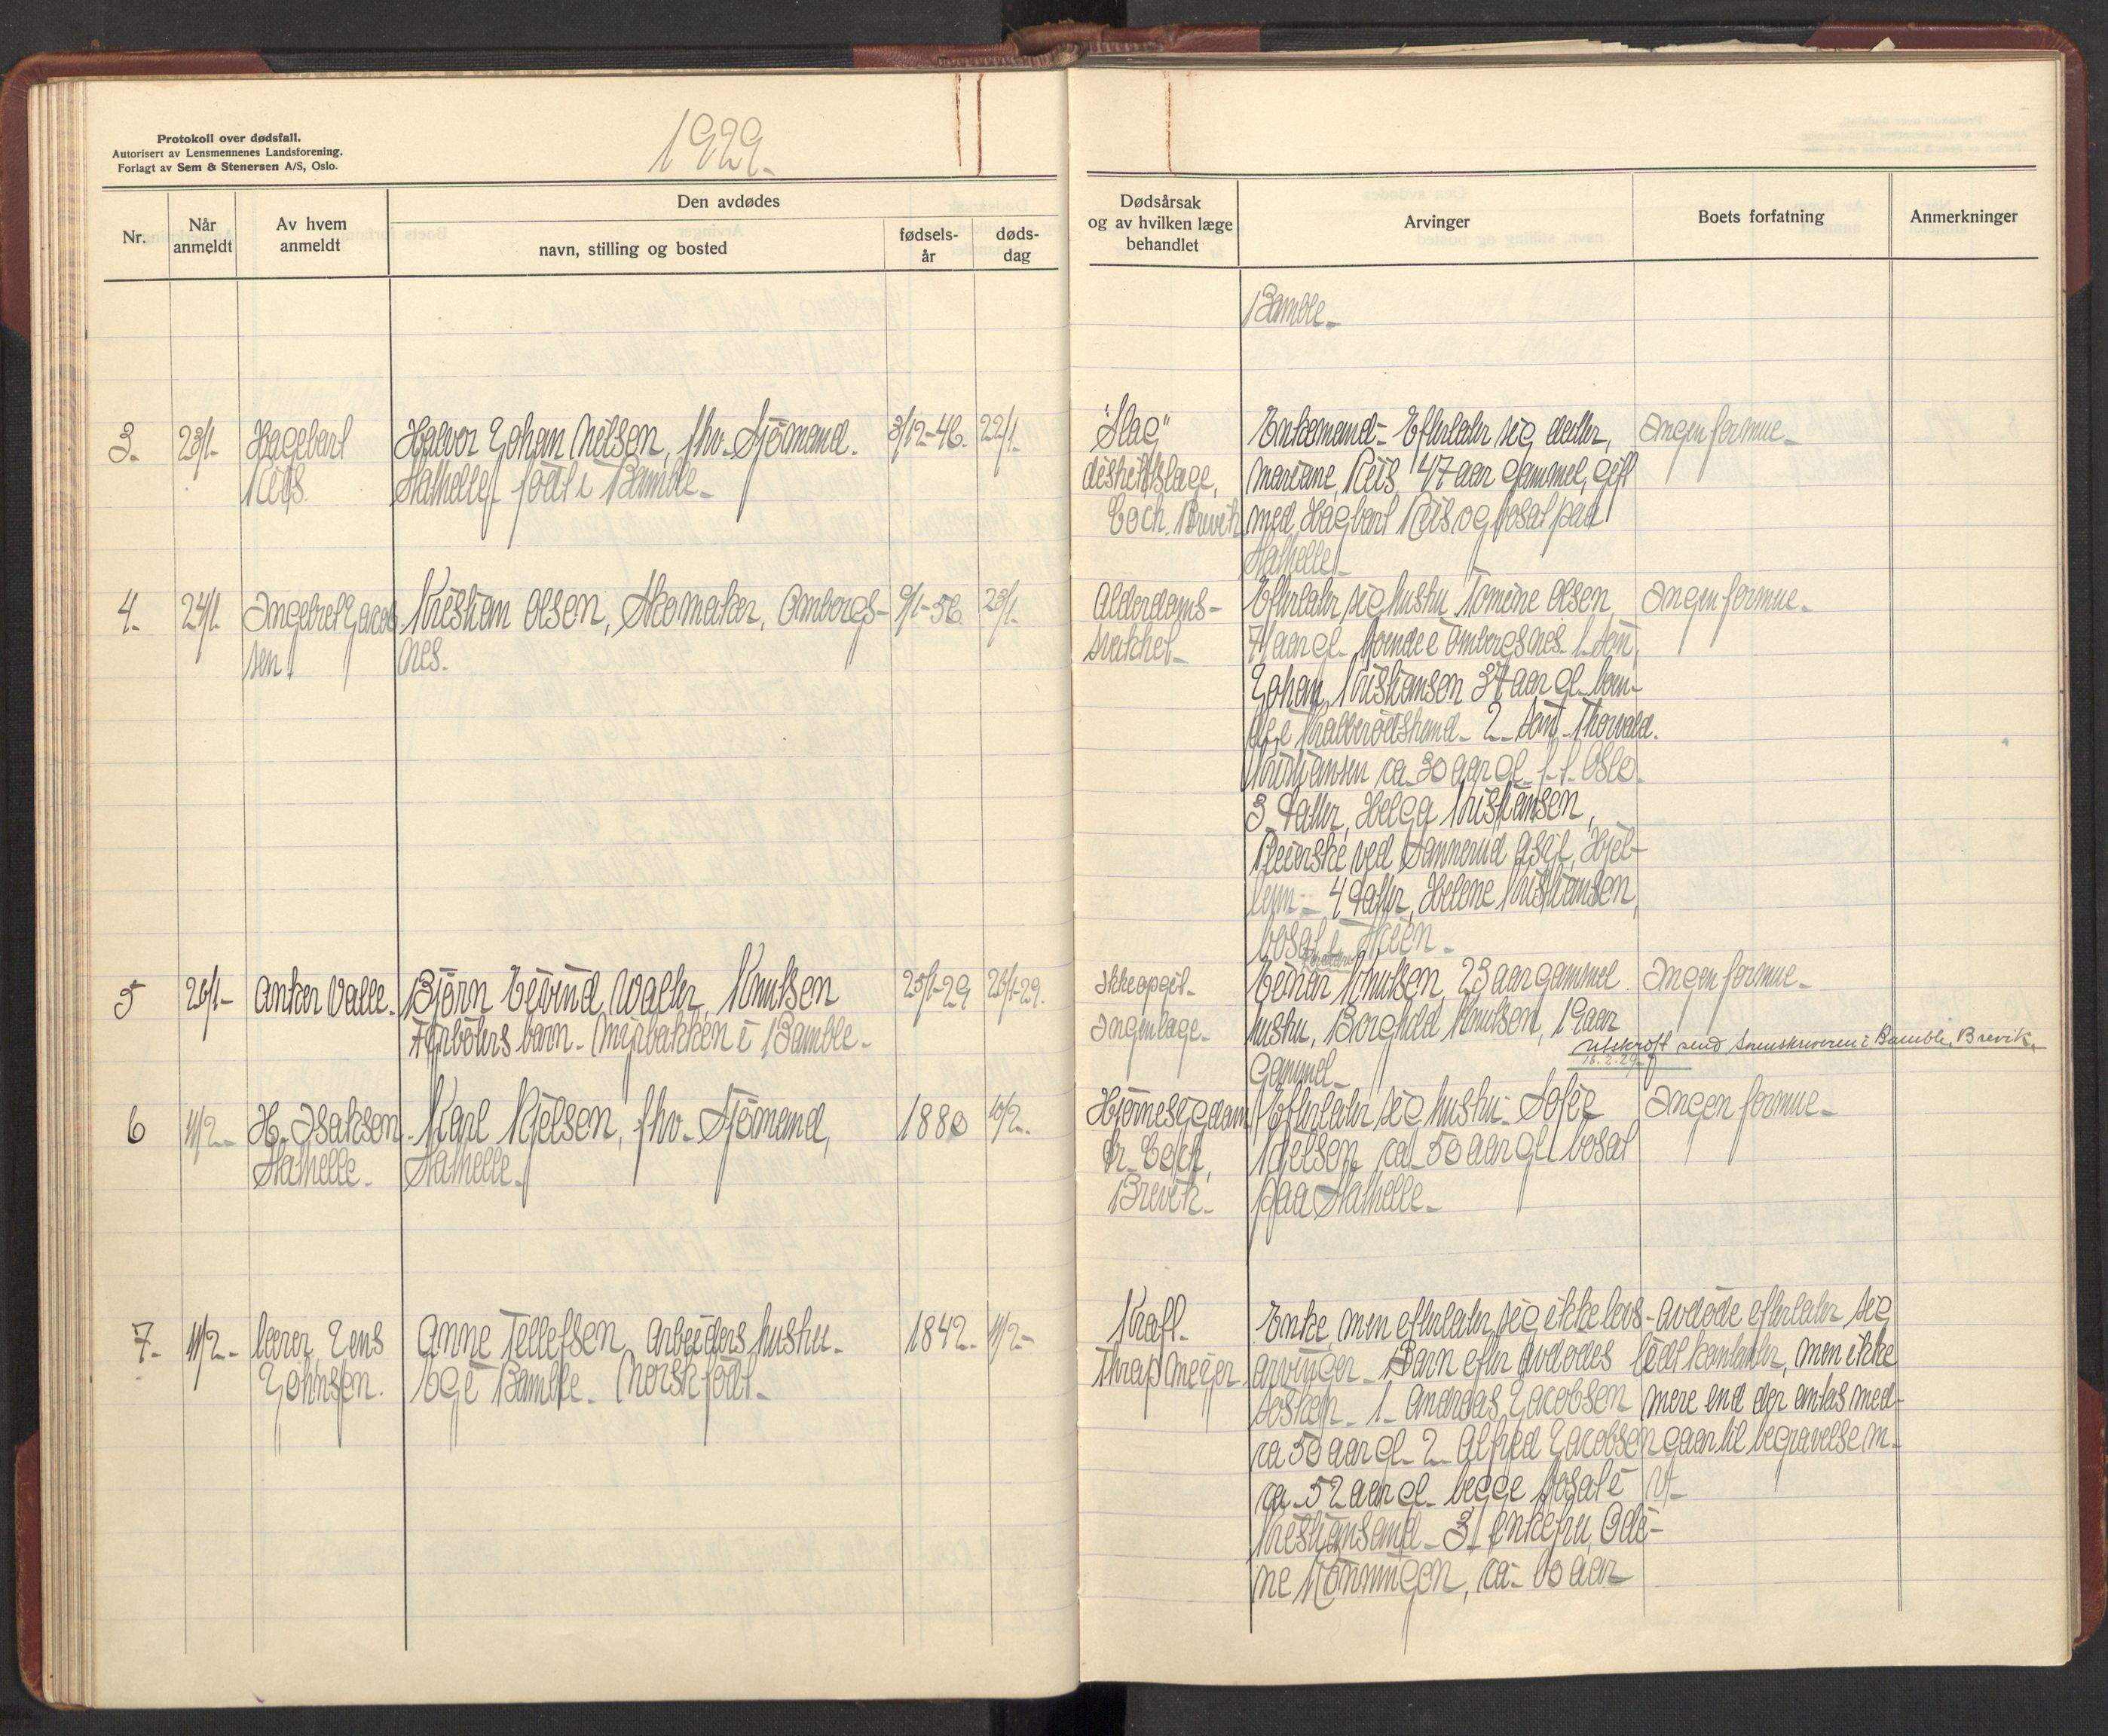 Protokoll over dødsfall.
Autorisert av Lensmennenes Landsforening.
Forlagt av Sem & Stenersen A/S, Oslo.
1929.
Nr.
Når
anmeldt
Av hvem
anmeldt
Den avdødes
navn, stilling og bosted
fødsels-
år
døds-
dag
3.
23/1-
Hagebart
Riis.
Halvor Johan Nilsen, fhv. Sjømand.
Stathelle, født i Bamble.
3/12-46.
22/1.
4.
24/1.
Ingebret Jacob
sen
Kristian Olsen, Skomaker, Ombergs-
nes.
9/1-56.
23/1.
5
26/1-
Anker Valle.
Bjørn Eivind Walter Knutsen
barn. Myrbakken i Bamble.
25/1-29
26/1-29.
6
11/2-
H. Isaksen
Stathelle.
Karl Kjelsen, fhv. Sjømand,
Stathelle.
1880
10/2.
7.
11/2-
lærer Jens
Johnsen.
Anne Tellefsen, arbeiders hustru.
i Bamble. Norsk født.
1842.
11/2-
Dødsårsak
og av hvilken læge
behandlet
Arvinger
Boets forfatning
Anmerkninger
Bamble.
"Slag"
distriktslæge,
Coch. Brevik
Enkemand- Efterlater sig datter,
Mariane Riis, 47 aar gammel, gift
med Hagbart Riis og bosat paa
Stathelle.
Ingen formue.
Alderdoms-
svakhet.
Efterlater sig hustru Tomine Olsen
71 aar gl. boende i Ombergsnes. 1. Søn,
Johan Kristiansen 37 aar gl. boen-
de i 2. Søn. Thorvald.
Kristiansen ca. 30 aar gl. f. t. Oslo.
3. datter, Helga Kristiansen,
Pleierske ved Sannerud Asyl, Hjel-
lum. 4. datter, Helene Kristiansen,
bosat i Skien.
Ingen formue.
Ikke opgit.
Ingen læge.
Foreldre
Einar Knutsen, 23 aar gammel.
hustru, Borghild Knutsen, 19 aar
gammel.
Ingen formue.
Utskrift send Sorenskriveren i Bamble, Brevik.
16.2.29.
dr. Coch,
Brevik.
Efterlater sig hustru. Sofie
Kjelsen, ca. 50 aar gl. bosat
paa Stathelle.
Ingen formue.
Kræft.
Thrap Meyer.
Enke, men efterlater sig ikke livs-
arvinger. Barn efter avdødes
søsken. 1. Andreas Jacobsen
ca 50 aar gl. 2. Alfred Jacobsen
ca. 52 aar gl. begge bosat i
Kristiansand. 3. enkefru, Odi-
ne Rønningen, ca. 60 aar
Avdøde efterlater sig
litt kontanter, men ikke
mere end der antas med-
gaar til begravelse m.
v.